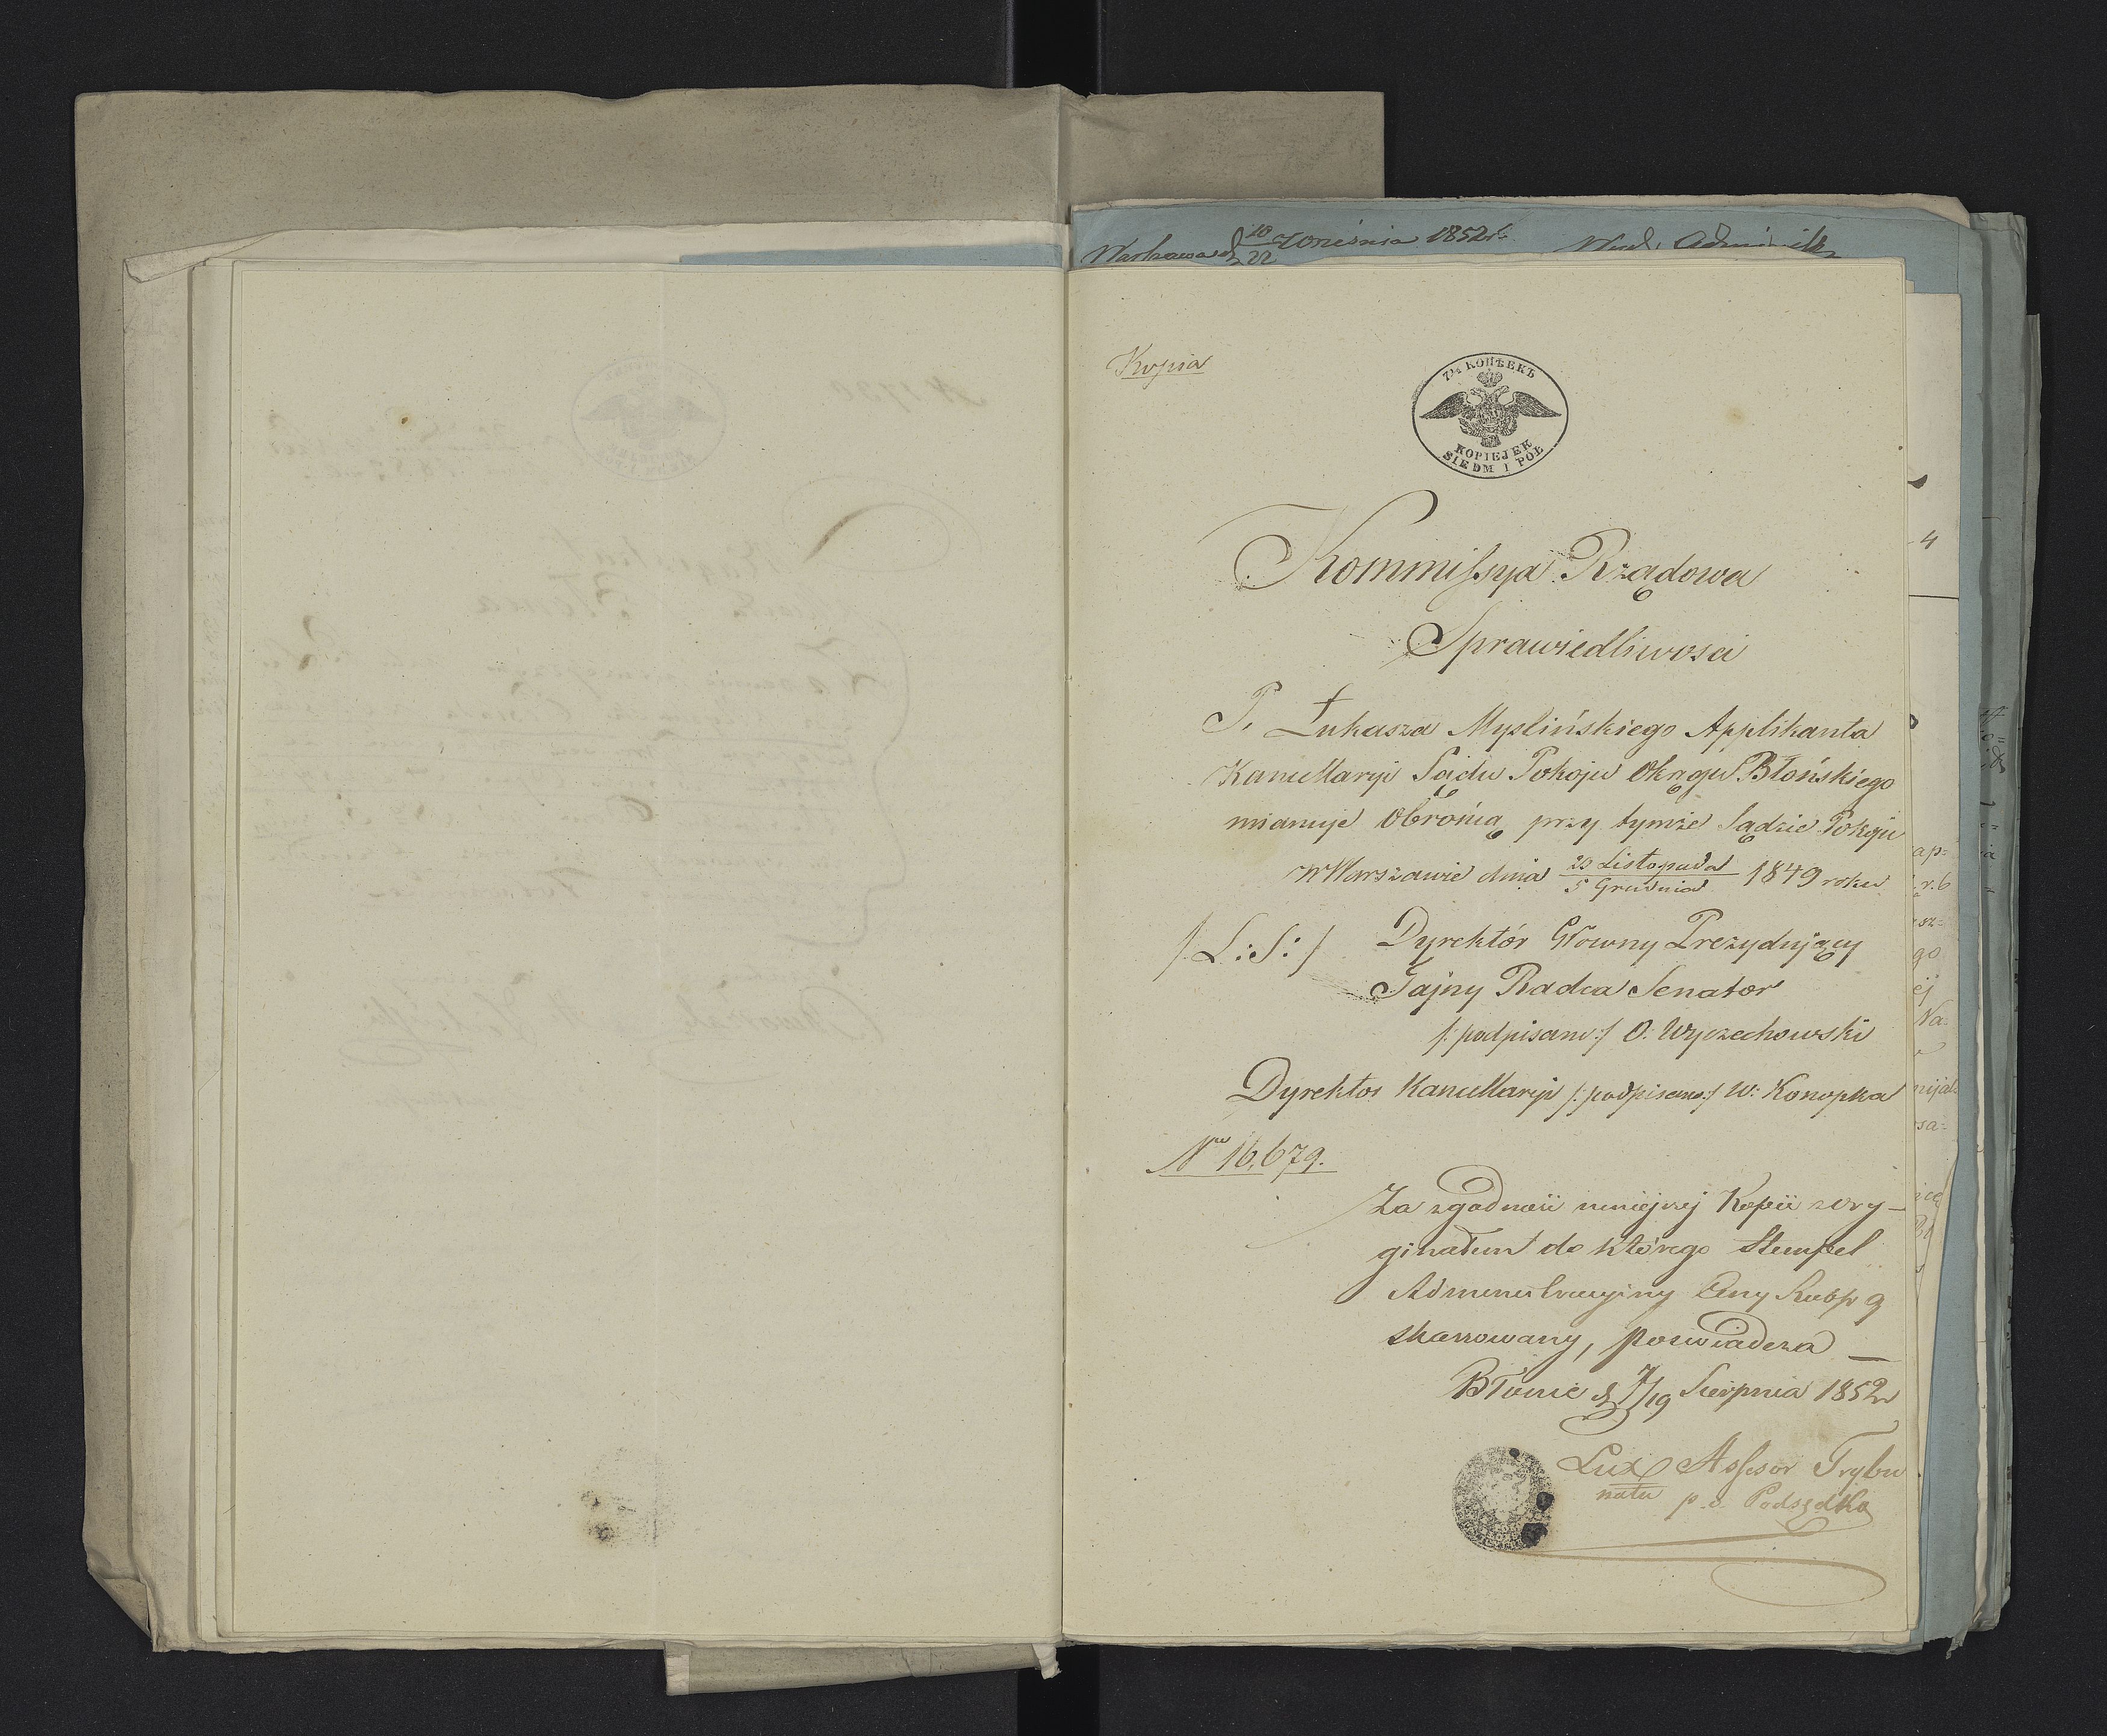 Warszawa d 10/22 Września 1852 r.
Kopia
7½ КОПѢЕКЪ
KOPIEJEK
SIEDM I PÓŁ
Kommissya Rządowa
Sprawiedliwosci
P. Łukasza Myslińskiego Applikanta
Kancellaryi Sądu Pokoju Okręgu Błońskiego
mianuje Obrońcą przy tymże Sądzie Pokoju
w Warszawie dnia 23 Listopada / 5 Grudnia 1849 roku
/: L: S: / Dyrektór Głowny Prezydujący
Tajny Radca Senator
/: podpisano :/ O. Wyczechowski
Dyrektor Kancellaryi /: podpisano :/ W: Konopka
Nro 16,679.
Za zgodność niniejszej Kopii z ory-
ginałem do którego Stempel
Administracyjny Ceny Kub p 9
skassowany, poswiadcza
Błonie d 7/19 Sierpnia 1852 r
Lux Assesor Trybu
nału p. o. Podsędka
4